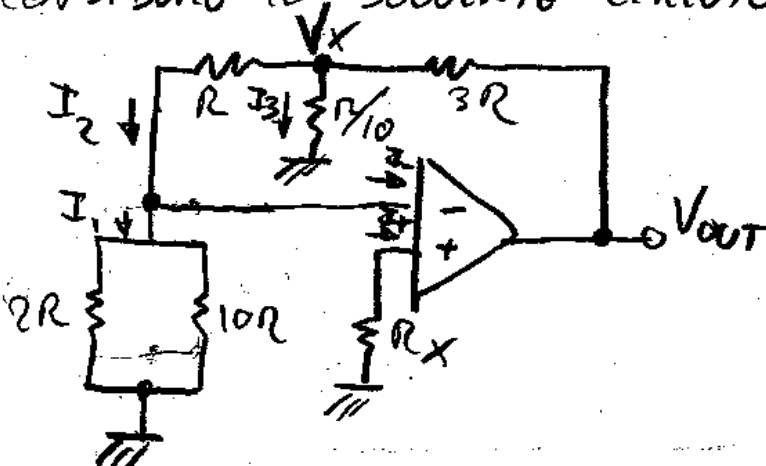 V_X
R
I_3
R/10
3R
I_2
I_1
-
+
V_OUT
2R
10R
R_X